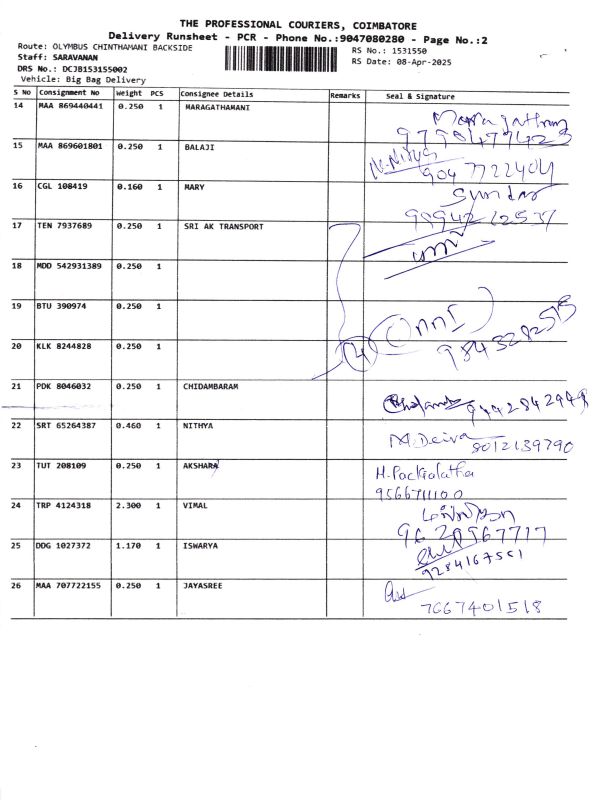 THE PROFESSIONAL COURIERS, COIMBATORE
Delivery Runsheet - PCR - Phone No.:9047080280 - Page No.:2
Route: OLYMBUS CHINTHAMANI BACKSIDE
RS No.: 1531550
Staff: SARAVANAN
RS Date: 08-Apr-2025
DRS No.: DCJB153155002
Vehicle: Big Bag Delivery
S No Consignment No Weight PCS Consignee Details Remarks Seal & Signature
14 MAA 869440441 0.250 1 MARAGATHAMANI
15 MAA 869601801 0.250 1 BALAJI
904 7722404
16 CGL 108419 0.160 1 MARY
Sundar
17 TEN 7937689 0.250 1 SRI AK TRANSPORT
18 MDD 542931389 0.250 1
19 BTU 390974 0.250 1
20 KLK 8244828 0.250 1
4
21 PDK 8046032 0.250 1 CHIDAMBARAM
9442842948
22 SRT 65264387 0.460 1 NITHYA
M.Deiva 8012139790
23 TUT 208109 0.250 1 AKSHARA
9566711100
24 TRP 4124318 2.300 1 VIMAL
25 DDG 1027372 1.170 1 ISWARYA
9284167551
26 MAA 707722155 0.250 1 JAYASREE
7667401518